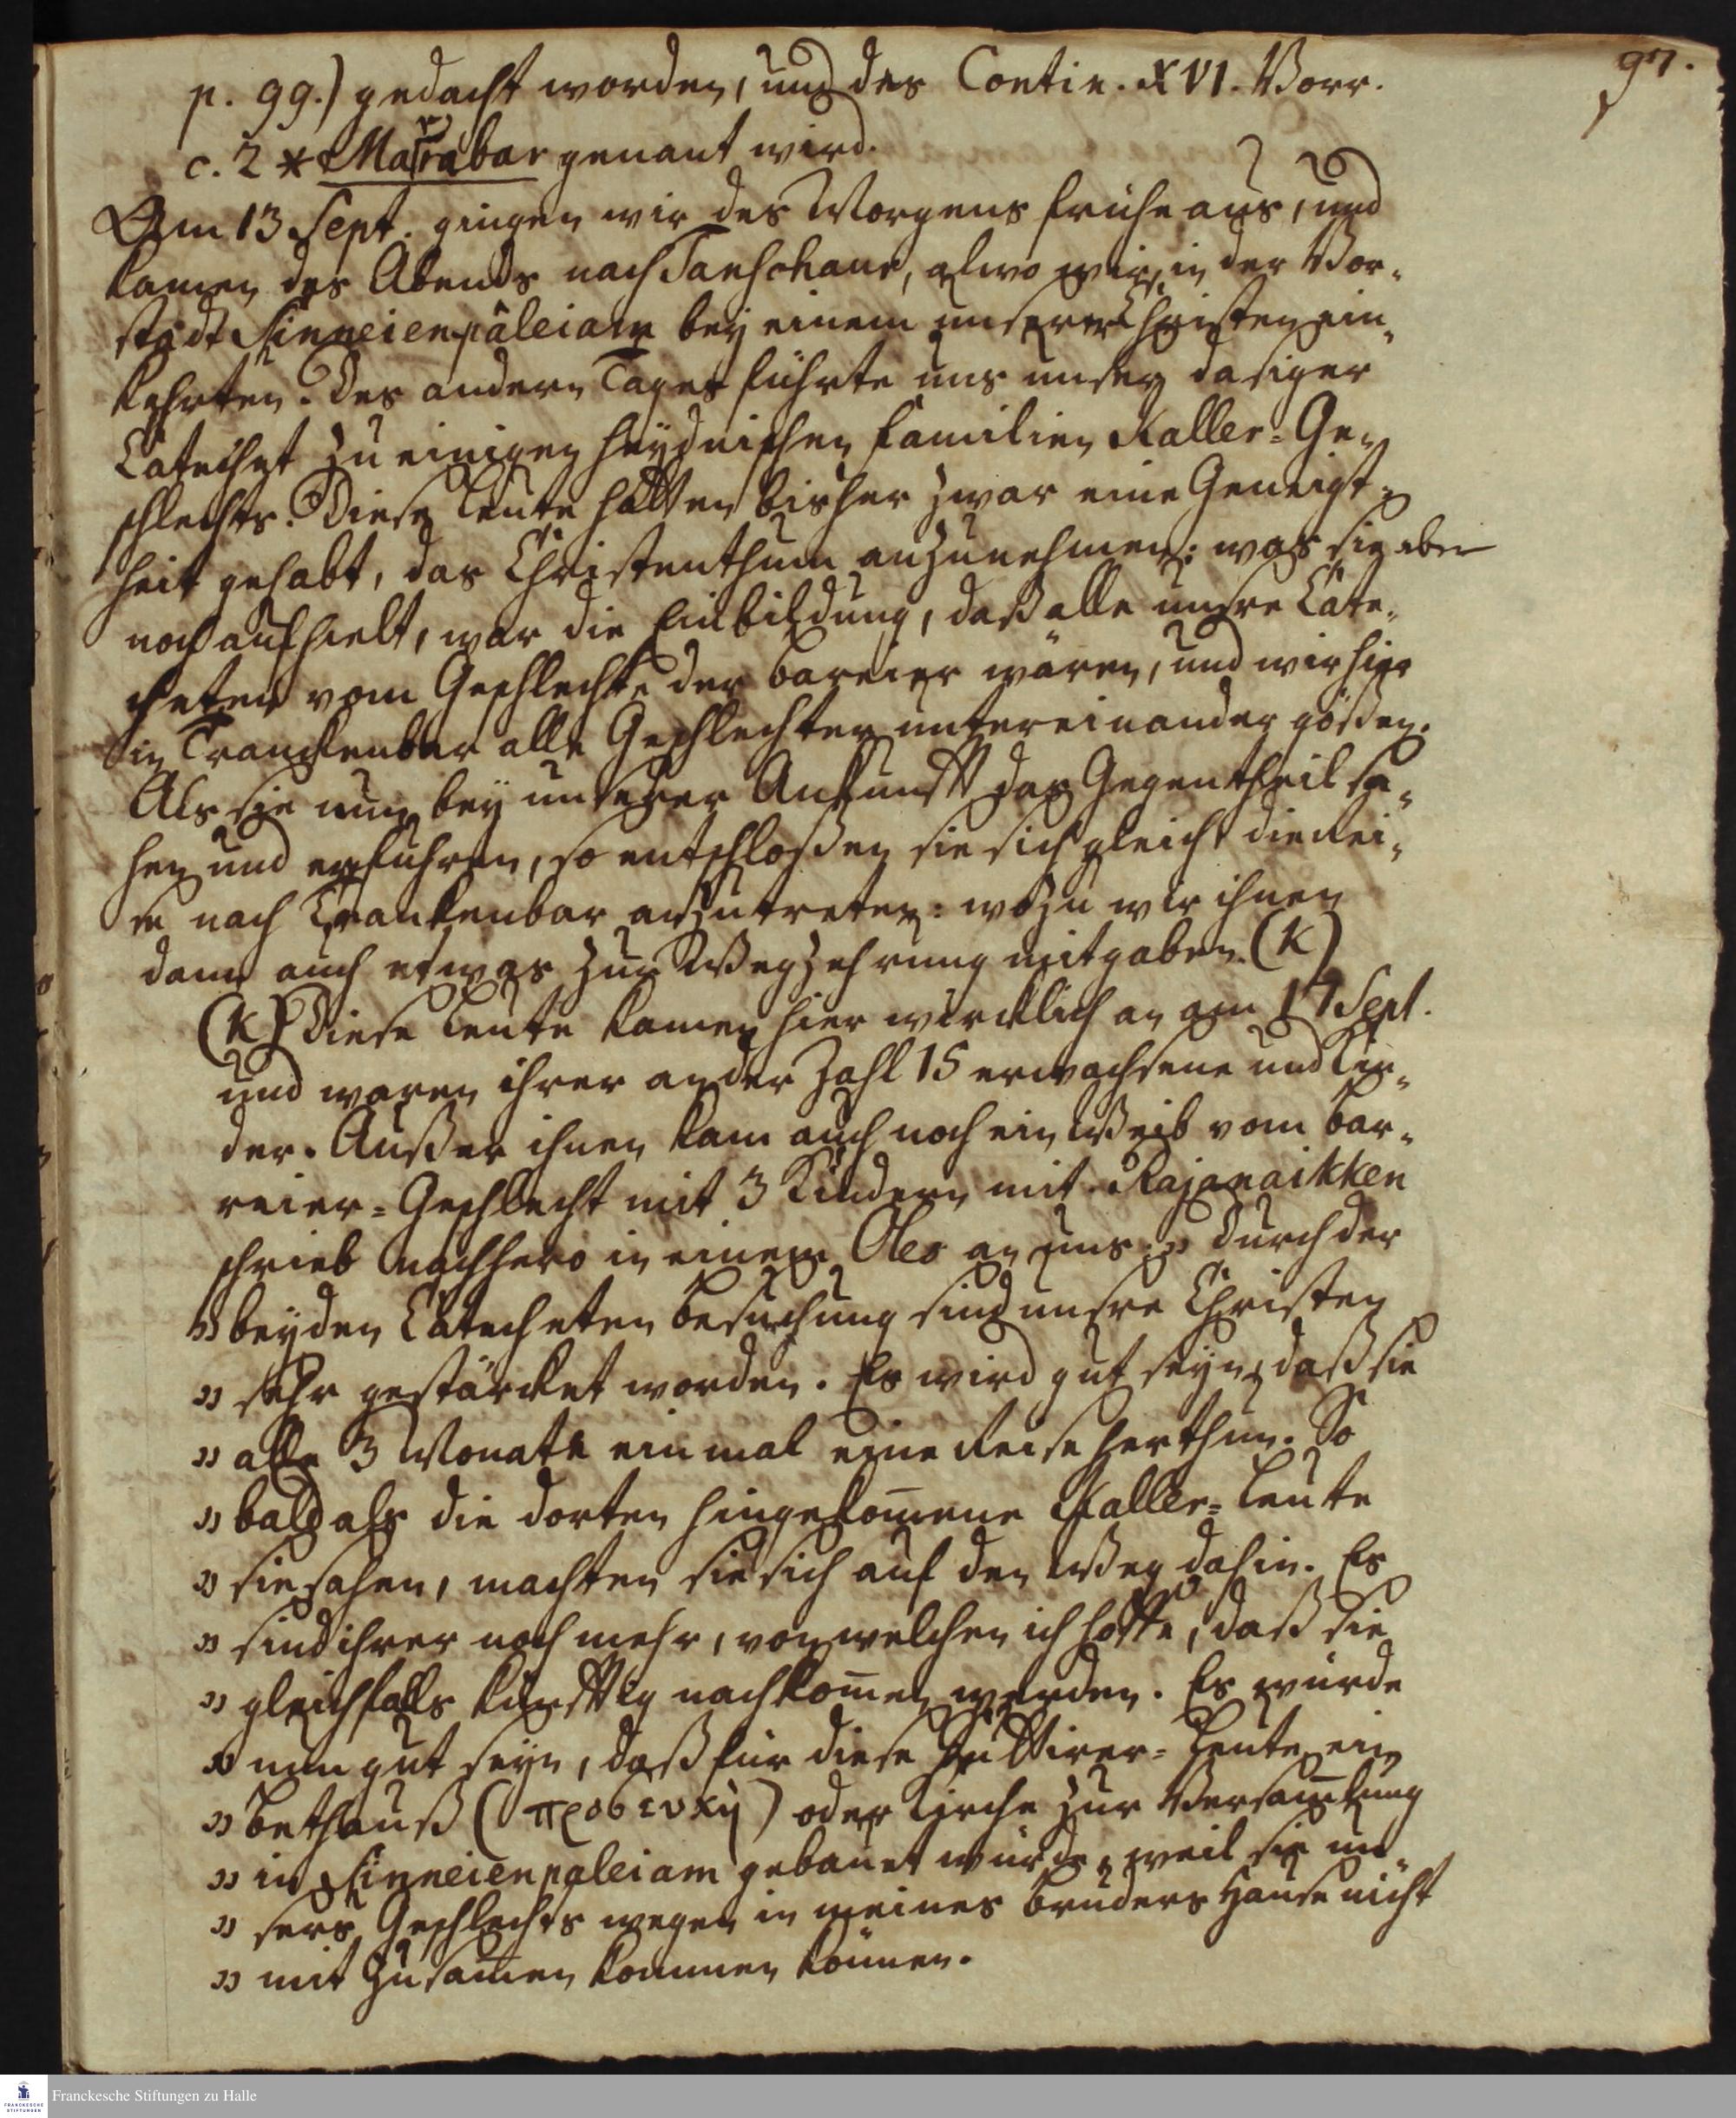 97.
p. 99.) gedacht worden, und des Contin. XVI. Vorr.
c. 2 * Marrabar genant wird.
Am 13 Sept. gingen wir des Morgens frühe aus, und
kamen des Abends nach Tanschaur, alwo wir in der Vor-
stadt Sinneienpâleiam bey einem unserer Christen ein-
kehrten. Des andern Tages führte uns unser dasiger
Catechet zu einigen heydnischen Familien Kaller-Ge-
schlechts. Diese Leute hatten bisher zwar eine Geneigt-
heit gehabt, das Christenthum anzunehmen: was sie aber
noch aufhielt, war die Einbildung, daß alle unsre Cate-
cheten vom Geschlechte der Bareier wären, und wir hier
in Tranckenbar alle Geschlechter untereinander gößen.
Als sie nun bey unserer Ankunfft das Gegentheil sa-
hen und erfuhren, so entschloßen sie sich gleich die Rei-
se nach Trankenbar anzutreten: wozu wir ihnen
dann auch etwas zur Wegzehrung mitgaben. (K)
(K) Diese Leute kamen hier würcklich an am 17 Sept.
und waren ihrer an der Zahl 15 erwachsene und Kin-
der. Außer ihnen kam auch noch ein Weib vom Bar-
reier-Geschlecht mit 3 Kindern mit. Rajanaikken
schrieb nachhero in einem Oles an uns: „ Durch der
„ beyden Catecheten Besuchung sind unsre Christen
„ sehr gestärcket worden. Es wird gut seyn, daß sie
„ alle 3 Monate einmal eine Reise herthun. So
„ bald als die dorten hingekom̄ene Kaller-Leute
„ sie sahen, machten sie sich auf den Weg dahin. Es
„ sind ihrer noch mehr, von welchen ich hoffe, daß sie
„ gleichfalls künfftig nachkom̄en werden. Es würde
„ nun gut seyn, daß für diese Leute ein
„ Bethauß (προσευχὴ) oder Kirche zur Versam̄lung
„ in Sinneienpaleiam gebauet würde, weil sie un-
„ sers Geschlechts wegen in meines Bruders Hause nicht
„ mit zusam̄en kommen können.
Franckesche Stiftungen zu Halle
FRANCKESCHE
STIFTUNGEN